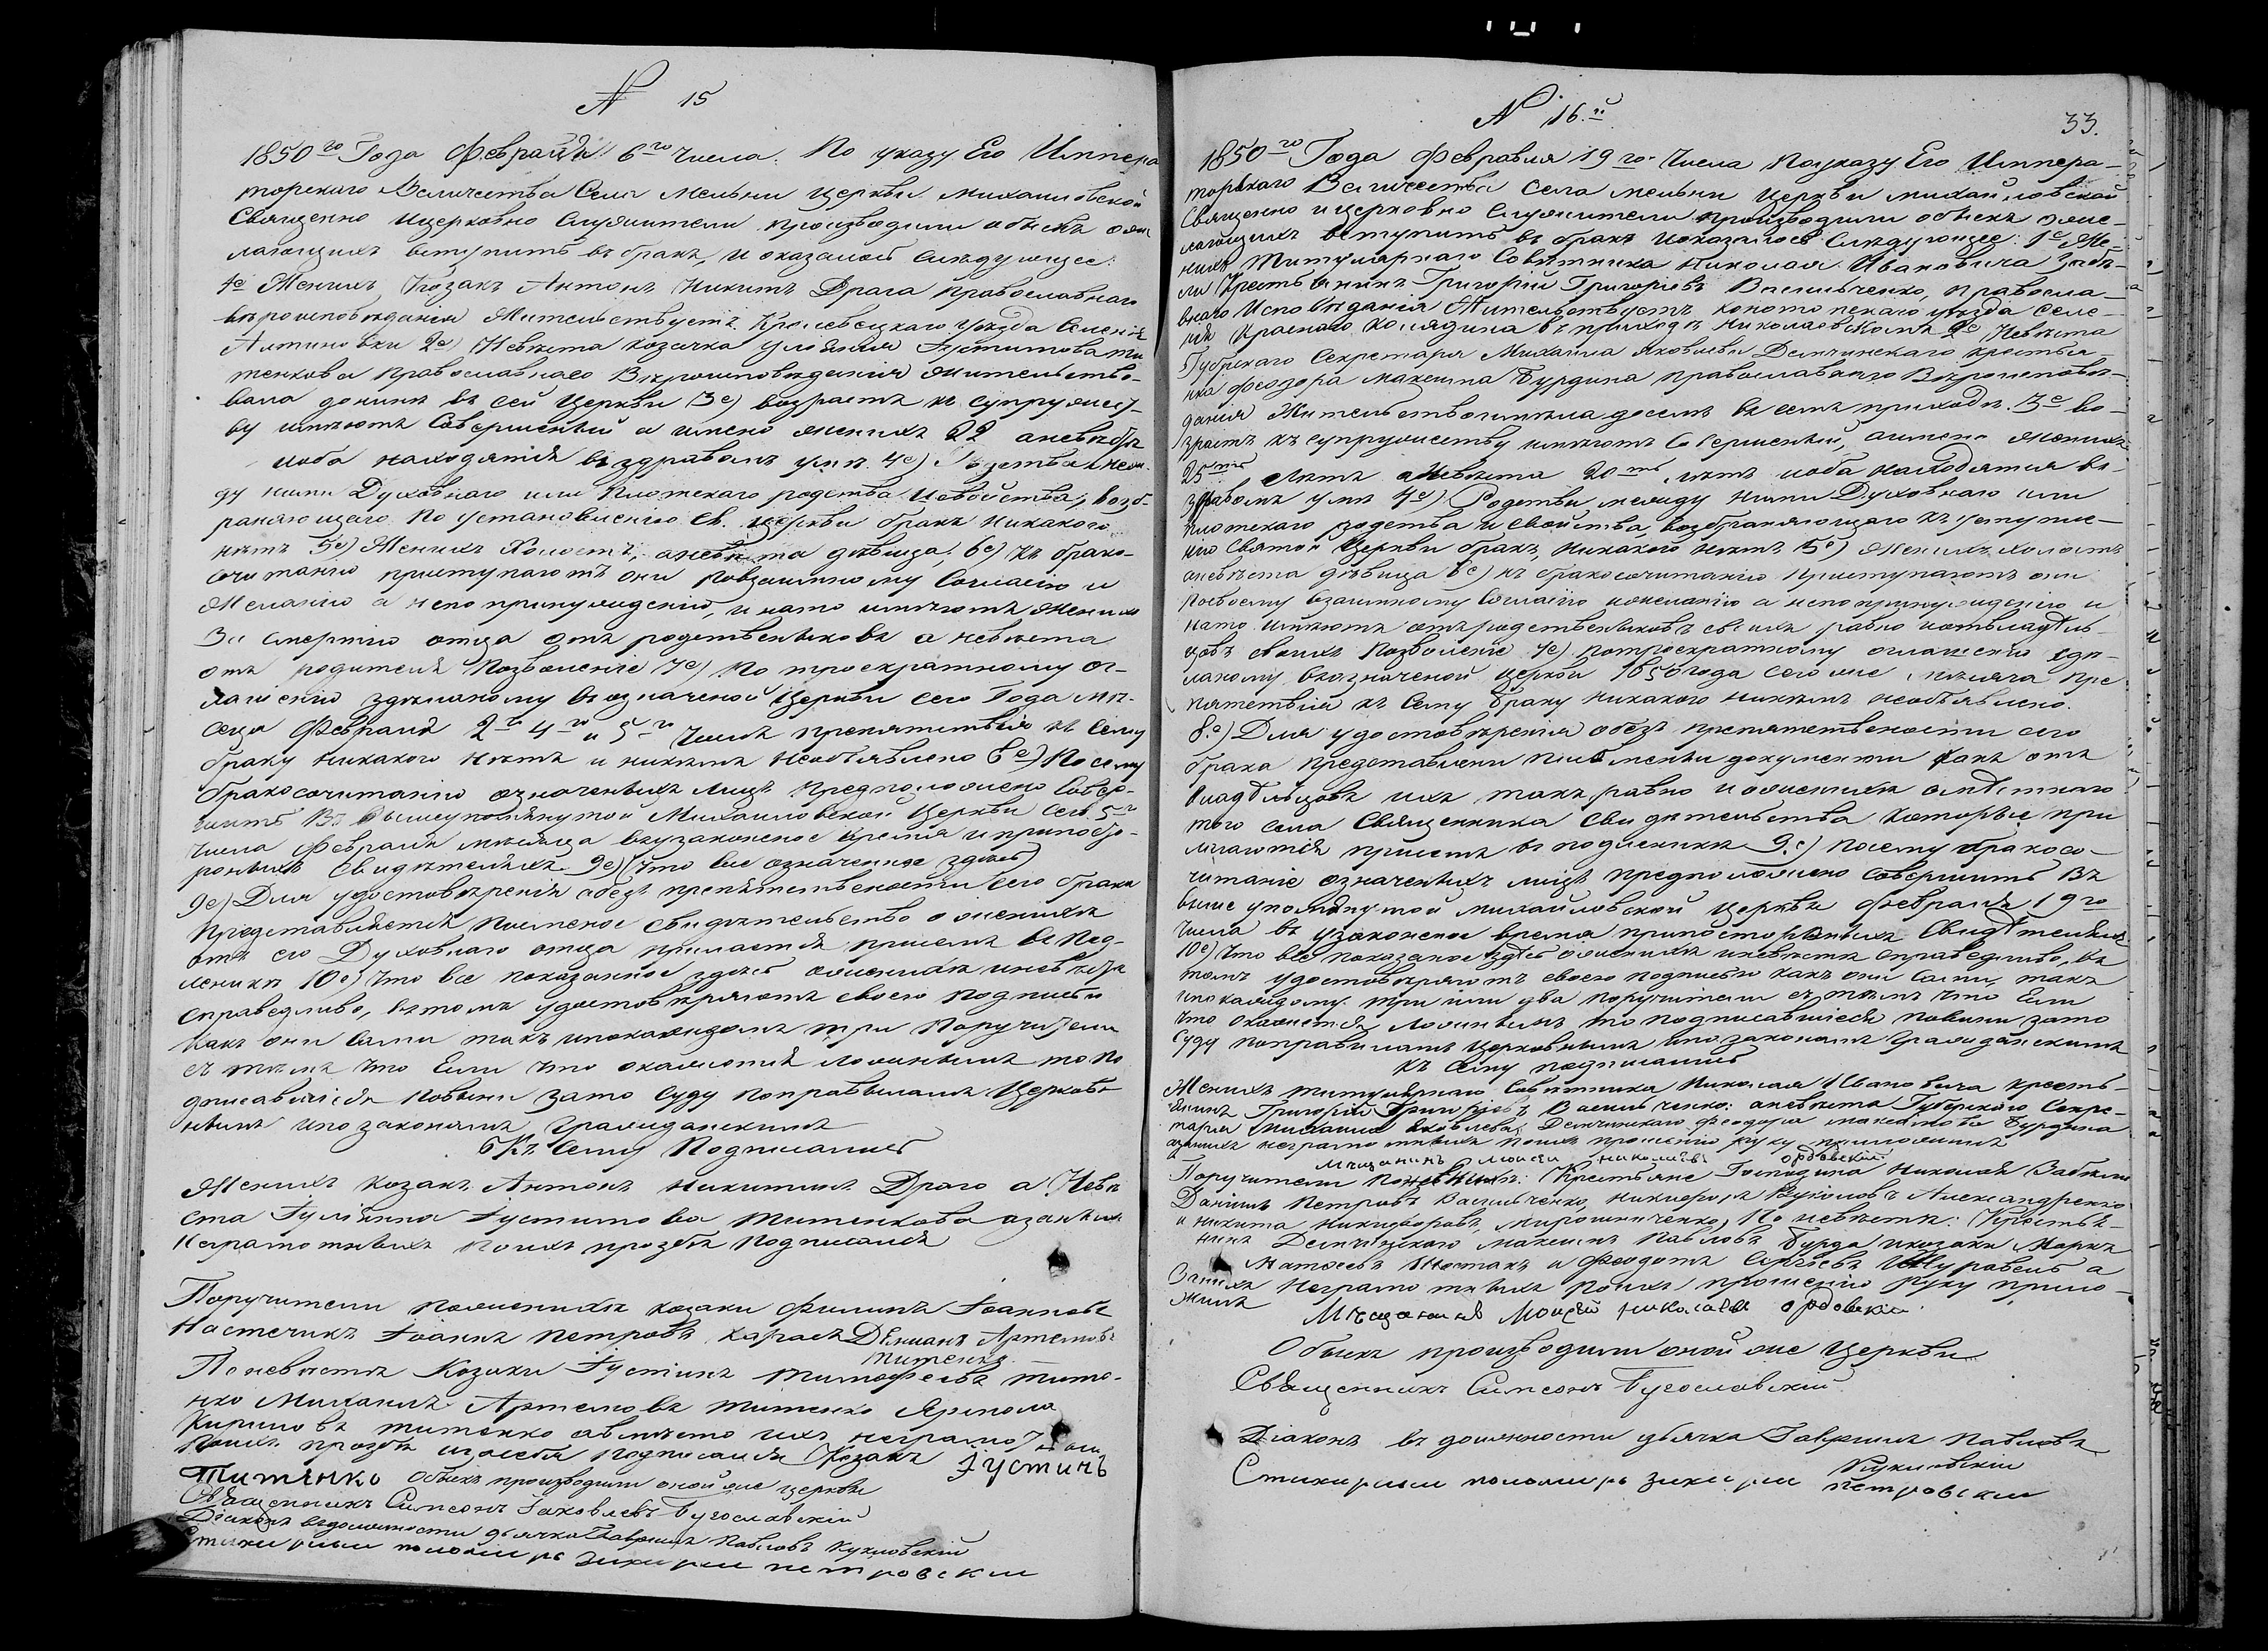 N 15
1850го Года Февраля 6го Числа. По указу Его Импера
торскаго Величества Села Мельни Церкви Михаиловской
Священно Ицерковно Служители производили обыскъ о же
лающихъ вступить въ бракъ, и оказалось следующее:
1е Женихъ Козакъ Антонъ Никитинъ Драга православнаго
вѣроисповѣданія Жительствуетъ Кролевецкаго уезда Селенія
Алтиновки 2е) Невѣста козачка Уліянія Густинова Ти
тенкова православнаго Вѣроисповѣданія Жительство
вала донинѣ въ сей Церкви 3е) возрастъ къ супружест
ву имѣютъ Совершенный а имено женихъ 22 аневѣста
иоба находятся въ здравомъ умѣ. 4е) Родства меж
ду ними Духовнаго или Плотскаго родства Исвойства, возб
раняющаго По установленію Св. Церкви бракъ никакого
нѣтъ 5е) Женихъ Холостъ, аневѣста дѣвица, 6е) Къ брако
сочитанію приступаютъ они повзаимному Согласію и
Желанію а непо принужденію, и нато имѣютъ Женихъ
За смертію отца отъ родственниковъ а невѣста
отъ родителя Позволеніе 7е) По троекратному ог
лашенію здѣланому въ означеной Церкви сего Года мѣ
сяца Февраля 2го 4го и 5го Числъ препятствія къ Сему
браку никакого нѣтъ и никѣмъ необъявлено 8е) По сему
бракосочитанію означенныхъ Лицъ предположено Совер
шить Въ Вышеупомянутой Михаиловской Церкви сего 5го
Числа Февраля мѣсяца въузаконеное время и припосто
роннихъ Свидѣтеляхъ. 9е) (Что все означенное здѣсь)
9е) Для удостовѣренія обезъ препятственности сего брака
Представляется Письменое свидѣтельство о женихѣ
отъ его Духовнаго отца прилается присемъ въ под
леникѣ 10е) Что все показанное здѣсь оженихѣ иневѣстѣ
Справедливо, втомъ удостовѣряютъ своею Подписью
какъ они Сами такъ ипокаждомъ три Поручители
съ тѣмъ Что Если Что окажется ложнымъ то по
дписавшіеся повинни зато Суду поправиламъ Церков
нымъ ипо законамъ Гражданскимъ
Къ Сему Подписались
Женихъ козакъ Антонъ Никитинъ Драго а Невѣ
ста Гуліянна Густинова Титенкова азанихъ
Неграмотныхъ Поихъ прозбѣ Подписался
Поручители поженихѣ козаки Филипъ Іоанновъ
Настечикъ Іоаннъ Петровъ Карась Деміанъ Артемовъ
Титенко
Поневѣстѣ Козаки Густинъ Тимофѣевъ Тите
нко Михаилъ Артемовъ Титенко Ярмола
Кириловъ Титенко авмѣсто ихъ неграмотныхъ
Поихъ прозбѣ изасебя подписался Козакъ Густинъ
Титенко Обыскъ производили оной же церкви
Священникъ Симеонъ Іаковлевъ Бугославскій
Діаконъ въдолжности дьячка Гавріилъ Павловъ Кукловскій
Стихарный пономарь Захарій Петровскій
N 16й
33.
1850го Года Февраля 19го Числа Поуказу Его Импера
торскаго Величества Села Мельни Церкви Михайловской
Священно ицерковно Служители производили обыскъ ожел
лающихъ вступить въ бракъ иоказалось Слѣдующее: 1е Же
нихъ Титулярнаго Совѣтника Николая Ивановича Забѣ
ли Крестьянинъ Григорій Григорьевъ Васильченко, православ
внаго Исповѣданія Жительствуетъ конотопскаго уѣзда Селе
нія Краснаго Колядина въ приходѣ Николаевскомъ 2е Невѣста
Губрскаго Секретаря Михаила Яковлева Демчинскаго крестья
нка Феодора Максима Бурдина православнаго Вѣроисповѣ
данія Жительствоимѣла доселѣ въ семъ приходѣ. 3е во
зрастъ къ супружеству имѣютъ Совершенный, аимено Женихъ
25ть Лѣтъ аневѣста 20ть лѣтъ иоба находятся въ
здравомъ умѣ 4е) Родства между ними Духовнаго или
плотскаго родства и свойства, возбраняющаго къ уступле
нію Святой Церкви бракъ, никакого нѣтъ 5е) Женихъ холостъ
аневѣста дѣвица 6е) къ бракосочитанію Приступаютъ они
посвоему взаимному согласію ижеланію а непопринужденію и
нато имѣютъ отъродственниковъ своихъ равно иотъвладѣль
цовъ своихъ Позволеніе 7е) потроекратному оглашенію здѣ
ланому въозначеной церкви 1850 года сего же мѣсяца пре
пятствія къ Сему браку никакого никѣмъ необъявлено.
8е) Для удостовѣренія обезъ препятственности сего
брака представлени писменни документи какъ отъ
владѣльцовъ ихъ такъ равно иоженихѣ омѣстнаго
того села Священника Свидѣтельства которые при
лагаются присемъ въ подленикѣ 9.е) посему бракосо
читаніе означенныхъ лицъ предположено Совершить Въ
выше упомянутой Михайловской Церкви Февраля 19го
Числа въ узаконеное время припостороннихъ Свидѣтеляхъ
10е) Что все показаное здѣсь оженихѣ иневѣстѣ справедливо, въ
томъ удостовѣряютъ своею подписью какъ они Сами, такъ
ипокаждому три или два поручители съ тѣмъ что Если
что окажется Ложнымъ то подписавшіеся повини зато
Суду поправиламъ Церковнымъ ипозаконамъ Гражданскимъ
Къ Сему подписались
Женихъ Титулярнаго Совѣтника Николая Ивановича крестья
янинъ Григорій Григорьевъ Васильченко: аневѣста Губерскаго Секре
таря Михаила Яковлева Демчинскаго Феодора Максимова Бурдина
азанихъ неграмотныхъ поихъ прошенію руку приложилъ
Мѣщанинъ Моисей Николаевъ Ордовскій
Поручители Поженихѣ: Крестьяне Господина Николая Забѣли
Даніилъ Петровъ Васильченко, Никифоръ Вуколовъ Александренко
и Никита Никифоровъ Мирошниченко, По невѣстѣ: Крестья
нинъ Демчинскаго Максимъ Павловъ Бурда икозаки Маркъ
Матвеевъ Шостакъ и Феодотъ Сергѣевъ Журавель а
Занихъ неграмотныхъ поихъ прошенію руку прило
жилъ Мѣщанинъ Моисей Николаевъ Ордовскій
Обыскъ производили оной же Церкви
Священникъ Симеонъ Бугославскій
Діаконъ въ должности дьячка Гавріилъ Павловъ
Кукловскій
Стихарный пономарь Захарій Петровскій